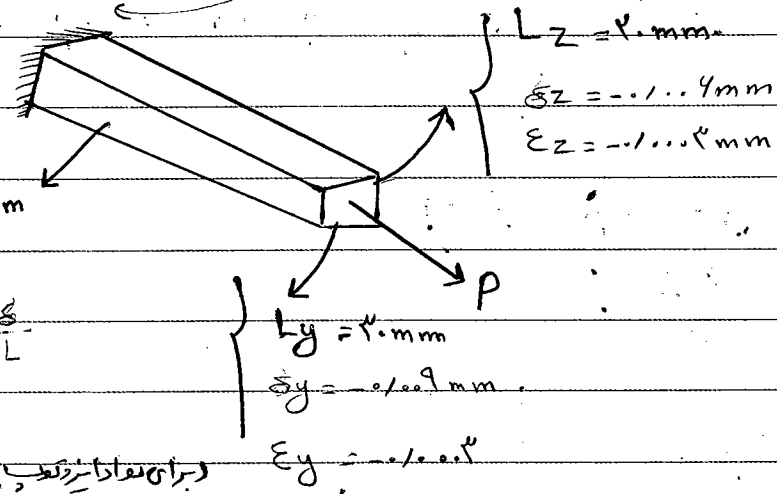 L z = ۲۰ mm.
δz = -۰/۰۰۶ mm
εz = -۰/۰۰۰۳ mm
m
P
δ
L
Ly = ۳۰ mm
δy = -۰/۰۰۹ mm.
εy = -۰/۰۰۰۳
(برای مواد ایزوتروپ